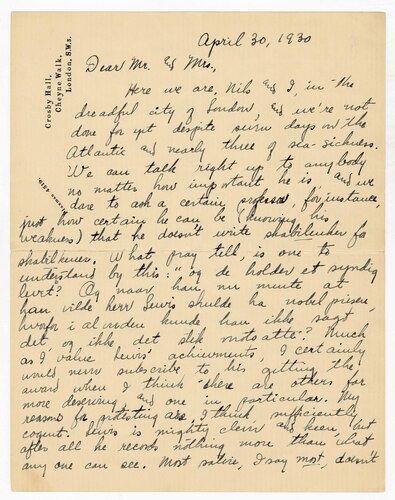 Crosby Hall,
Cheyne Walk,
London, S.W.3.
April 30, 1930
Dear Mr. & Mrs.,
Here we are, Nils & I, in the
dreadful city of London, & we're not
done for yet despite seven days on the
Atlantic and nearly three of sea-sickness.
We can talk right up to anybody
no matter how important he is and we
dare to ask a certain professor, for instance,
just how certain he can be (knowing his
weakness) that he doesn't write skatilunker for
skatilkuer. What pray tell, is one to
understand by this: "og de holder et syndig
leurt? Og naar han nu mente at
han vilde herr Lewis skulde ha nobel prisen,
hvorfor i al verden kunde han ikke sagt
det og ikke det slik motsatte? Much
as I value Lewis' achievments, I certainly
would never subscribe to his getting the
award when I think there are others far
more deserving and one in particular. My
reasons for protesting are, I think, sufficiently
cogent. Lewis is mighty clever and keen, but
after all he records nothing more than what
any one can see. Most satire, I say most, doesn't